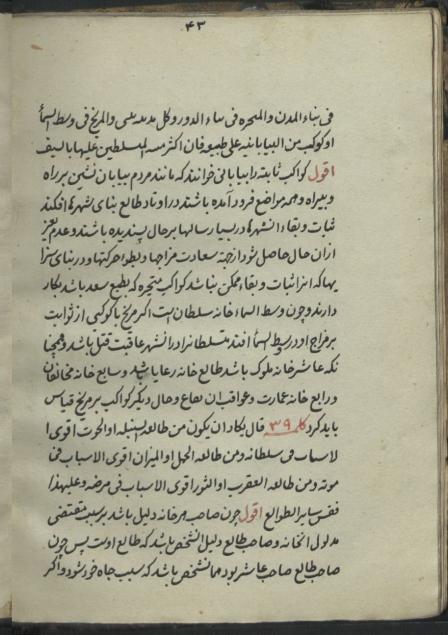 ۴۳
فی بناء المدن والمتحیره فی بناء الدور وکل مدینه بنی والمریخ فی وسط السمأ
او کوکب من البیابانیه علی طبیعه فان اکثر المتسلطین علیها بالسیف
اقول کواکب ثابته را بیابانی خوانند که مانند مردم بیابان نشین بر راه
و بیراه و همه مواضع فرود آمده باشند در اوتاد طالع بنای شهرها افکند
ثبات و بقاء انشهرها در بسیار سالها بر حال پسندیده باشند و عدم تغیر
از ان حال حاصل شود از جهة سعادت مزاجها و بطوء حرکتها و در بنای سرا
یها که انرا ثبات و بقا ممکن نباشد کواکب متحیره که بطبع سعد باشد بکار
دارند و چون وسط السماء خانه سلطان است اکر مریخ یا کوکبی از ثوابت
بر مزاج او در وسط السمأ افتد متسلطانرا در انشهر عاقبت قتل باشد و همچنا
نکه عاشر خانه ملوک باشد طالع خانه رعایا باشد و سابع خانه مخالفان
و رابع خانه عمارت و عواقب ان بقاع و حال دیکر کواکب بر مریخ قیاس
باید کرد کلمه ۳۹ قال یکاد ان یکون من طالعه السنبله او الحوت اقوی ا
لاسباب فی سلطانه ومن طالعه الحمل او المیزان اقوی الاسباب فی
موته ومن طالعه العقرب او الثور اقوی الاسباب فی مرضه وعلیهذا
فقس سایر الطوالع اقول چون صاحب هر خانه دلیل باشد بر سبب مقتضی
مدلول انخانه و صاحب طالع دلیل انشخص باشد که طالع اوست پس چون
صاحب طالع صاحب عاشر بود همانشخص باشد که سبب جاه خود شود و اکر